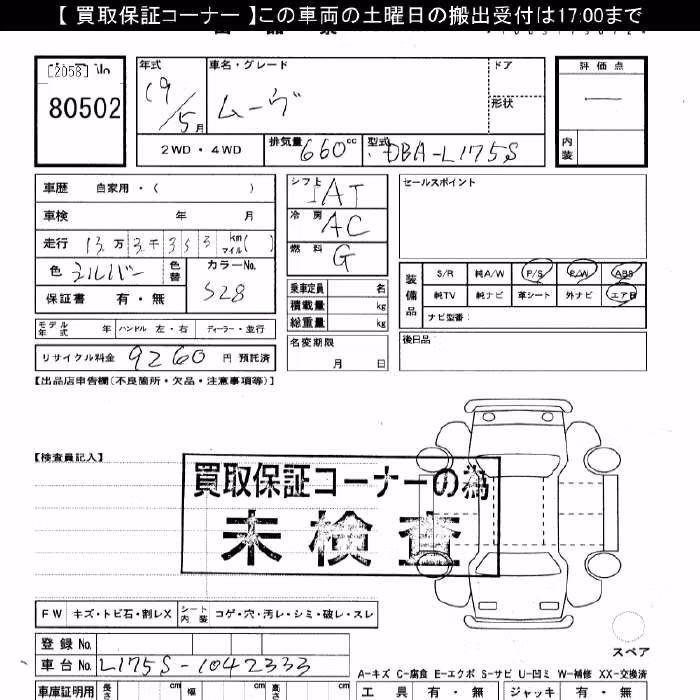 【 買取保証コーナー 】この車両の土曜日の搬出受付は17:00まで
[2058]
80502
年式
19/5月
車名・グレード
ムーヴ
ドア
形状
評価点
―
内装
2WD・4WD
排気量 660cc
型式 DBA-L175S
車歴 自家用・( )
車検 年 月
走行 13万3千353 km マイル( )
色 シルバー 色替
カラーNo. S28
保証書 有・無
モデル年式 年 ハンドル 左・右 ディーラー・並行
リサイクル料金 9260 円 預託済
シフト IAT
冷房 AC
燃料 G
乗車定員 名
積載量 kg
総重量 kg
名変期限
月 日
セールスポイント
装備品
S/R 純A/W P/S P/W ABS
純TV 純ナビ 革シート 外ナビ エアB
ナビ型番:
後日品
【出品店申告欄(不良箇所・欠品・注意事項等)】
【検査員記入】
買取保証コーナーの為
未検査
FW キズ・トビ石・割レX シート内装 コゲ・穴・汚レ・シミ・破レ・スレ
スペア
登録 No.
車台 No. L175S-1042333
A-キズ C-腐食 E-エクボ S-サビ U-凹ミ W-補修 XX-交換済
車庫証明用 長さ cm 幅 cm 高さ cm
工具 有・無 ジャッキ 有・無